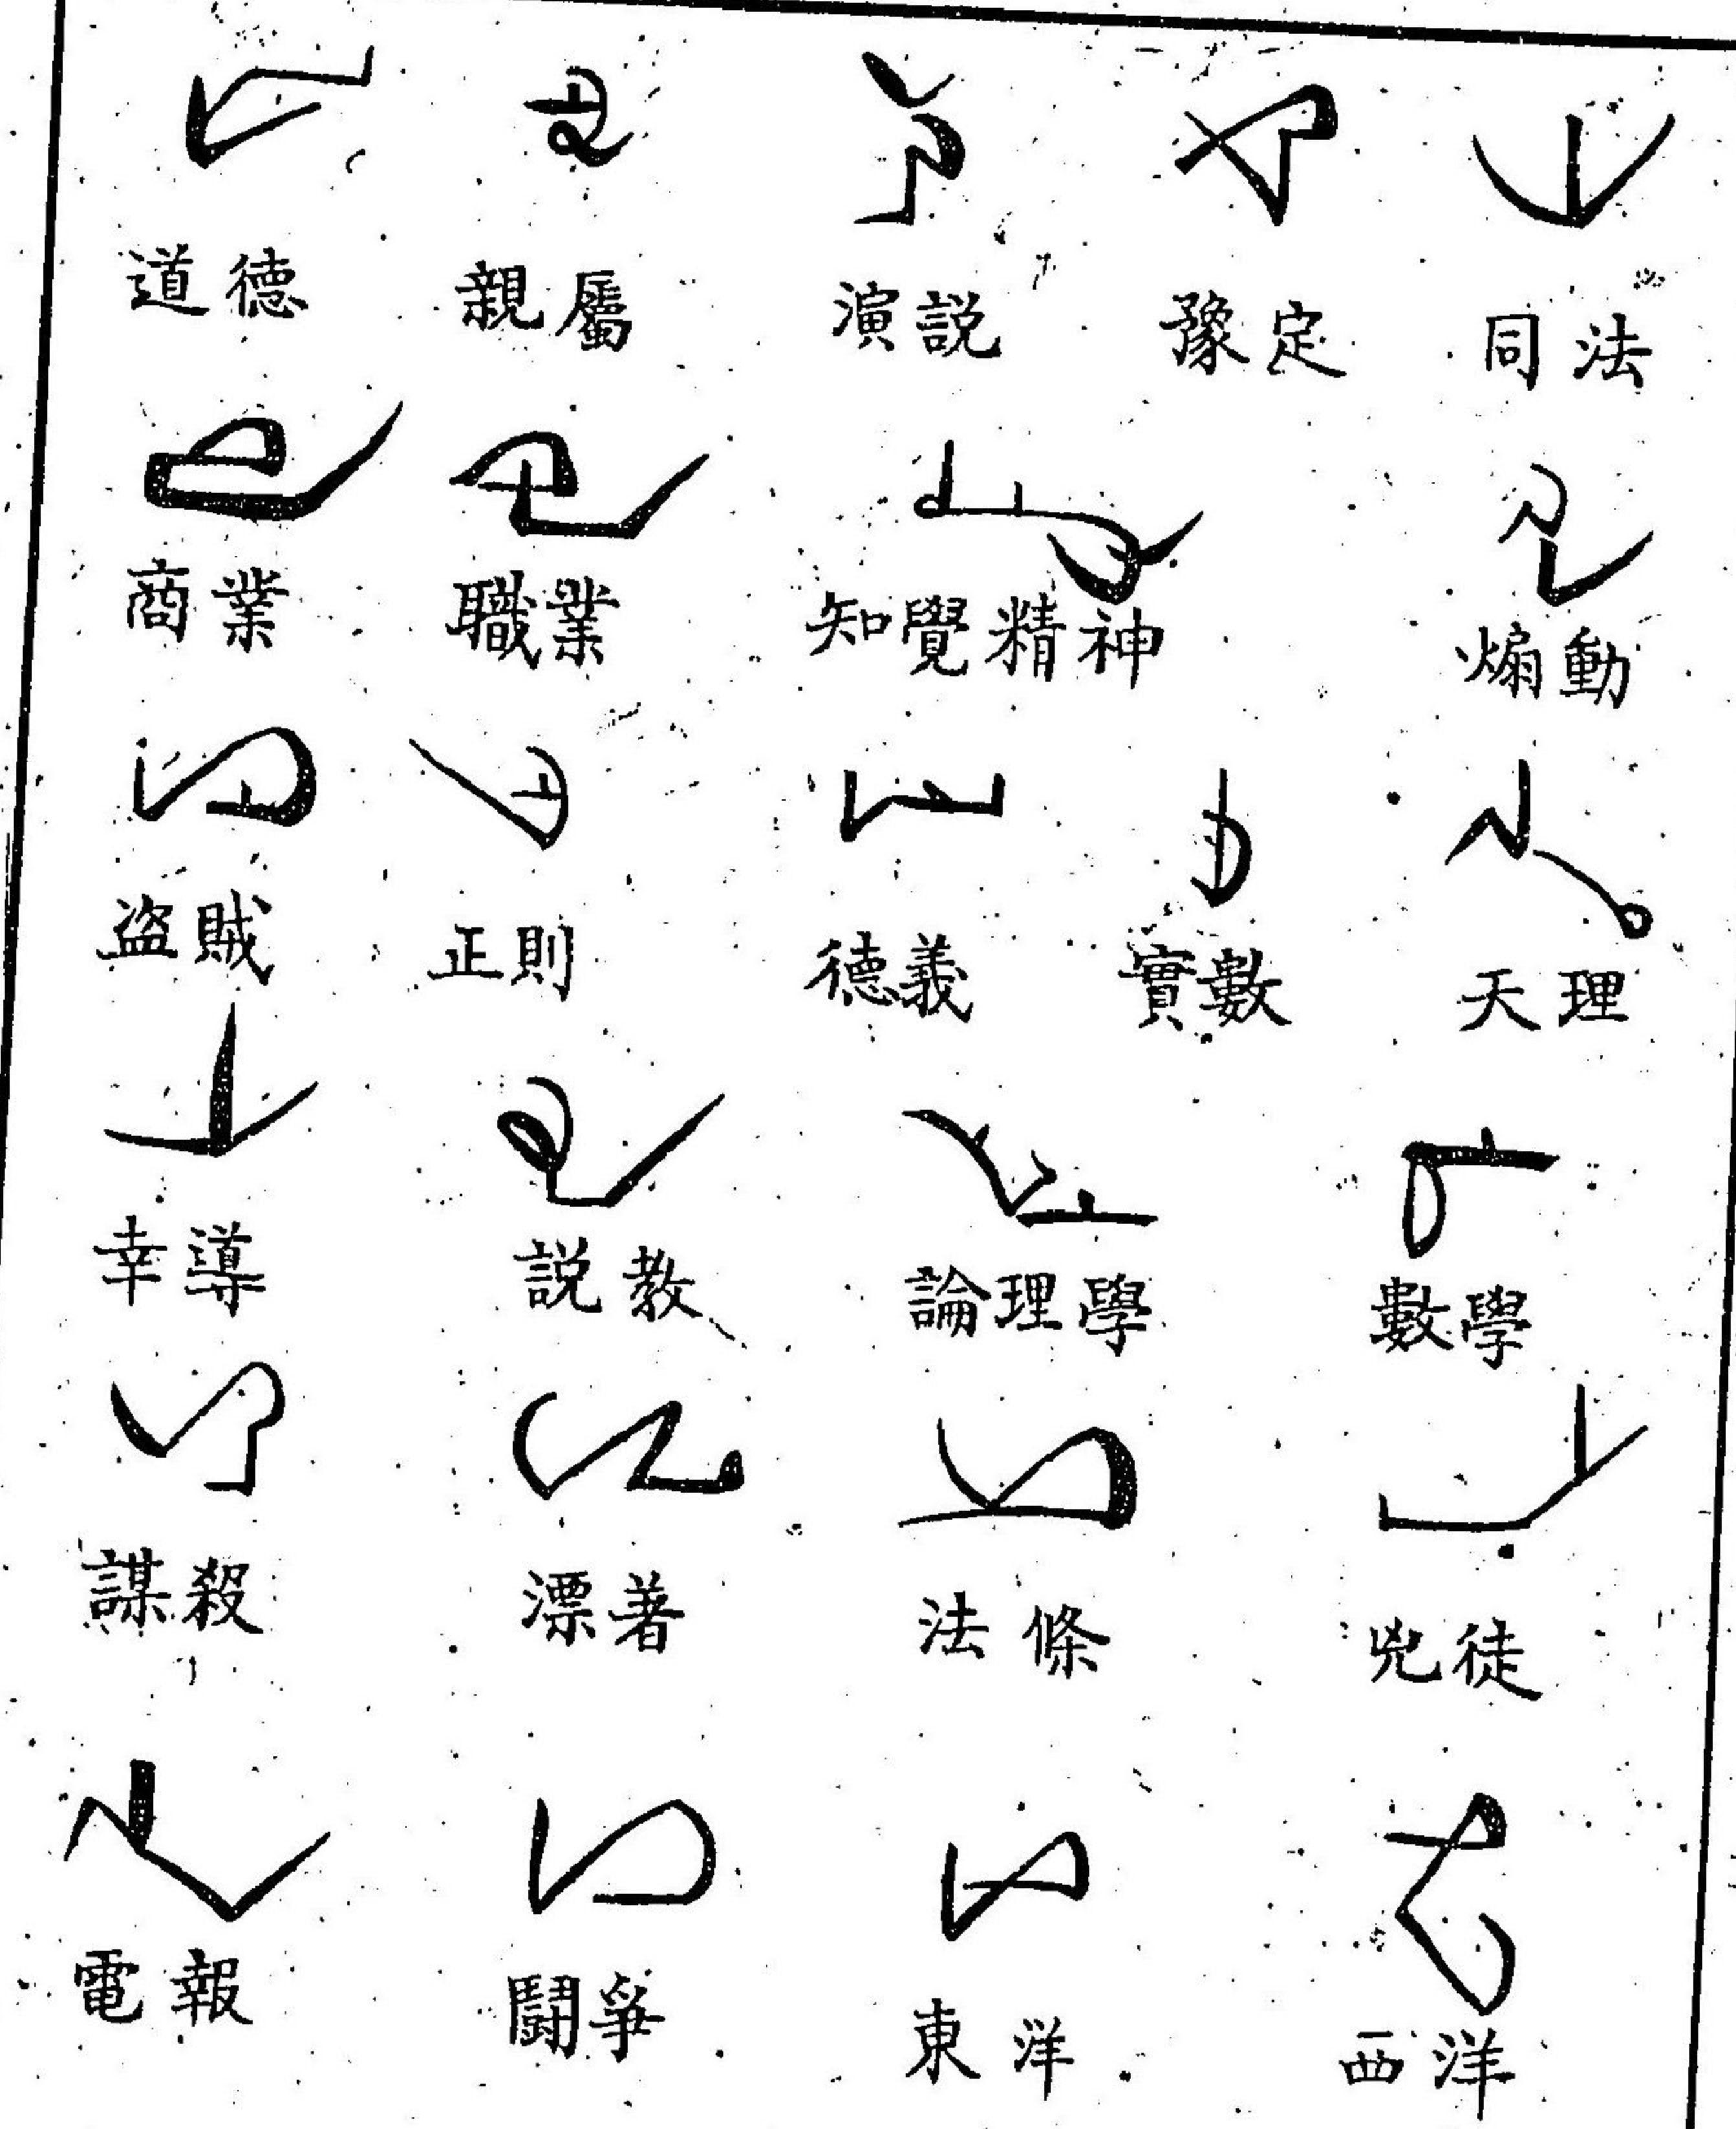 道德 親屬 演説 豫定 同法
商業 職業 知覺精神 煽動
盗賊 正則 德義 實數 天理
幸導 説教 論理學 數學
謀殺 漂著 法條 兇徒
電報 鬪爭 東洋 西洋